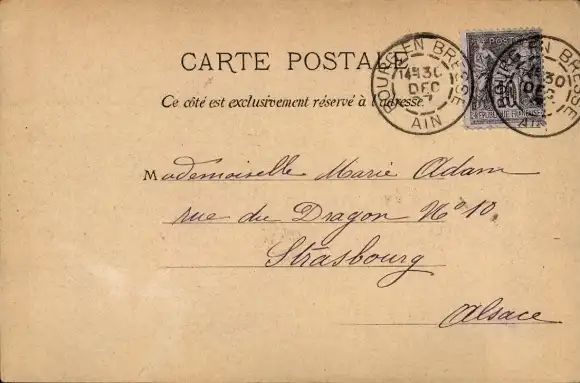 CARTE POSTALE
Ce côté est exclusivement réservé à l'adresse
BOURG EN BRESSE
30
DEC
AIN
BOURG EN BRESSE
30
DEC
AIN
POSTE
10
REPUBLIQUE FRANÇAISE
Mademoiselle Marie Adam
rue du Dragon No 10
Strasbourg
Alsace